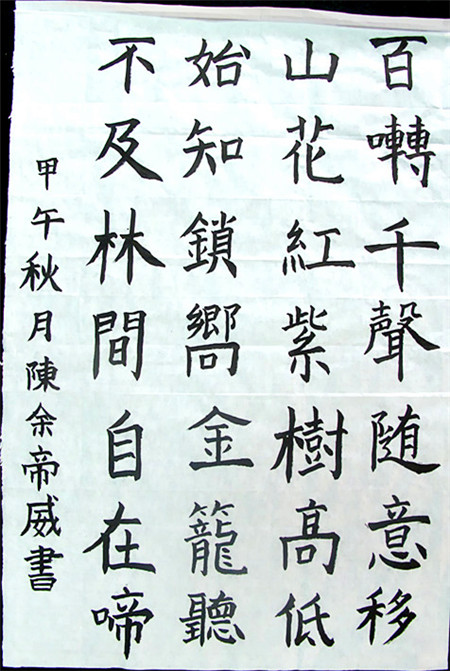 百囀千聲随意移
山花紅紫樹髙低
始知鎖嚮金籠聽
不及林間自在啼
甲午秋月陳余帝威書